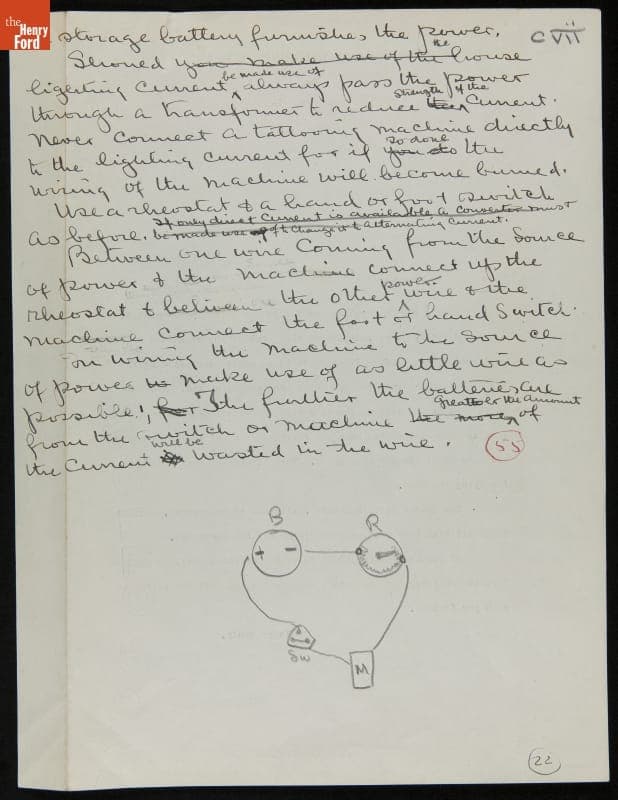 the
Henry
Ford
storage battery furnishes the power.
cvii
Shoned you make use of the the house
lighting current be made use of always pass the power
through a transformer to reduce strength of the current.
Never connect a tattooing machine directly
to the lighting current for if you do so done the
wiring of the machine will become burned.
Use a rheostat & a hand or foot switch
as before. If only direct current is available a converter must
be made use of to change it to alternating current.
Between one wire coming from the source
of power & the machine connect up the
rheostat & between the other power wire & the
machine connect the foot or hand switch.
On wiring the machine to the source
of power make use of as little wire as
possible, for The further the batteries are
from the switch or machine the more greater the amount of
the current is will be wasted in the wire.
55
B
R
+ −
Sw
M
22